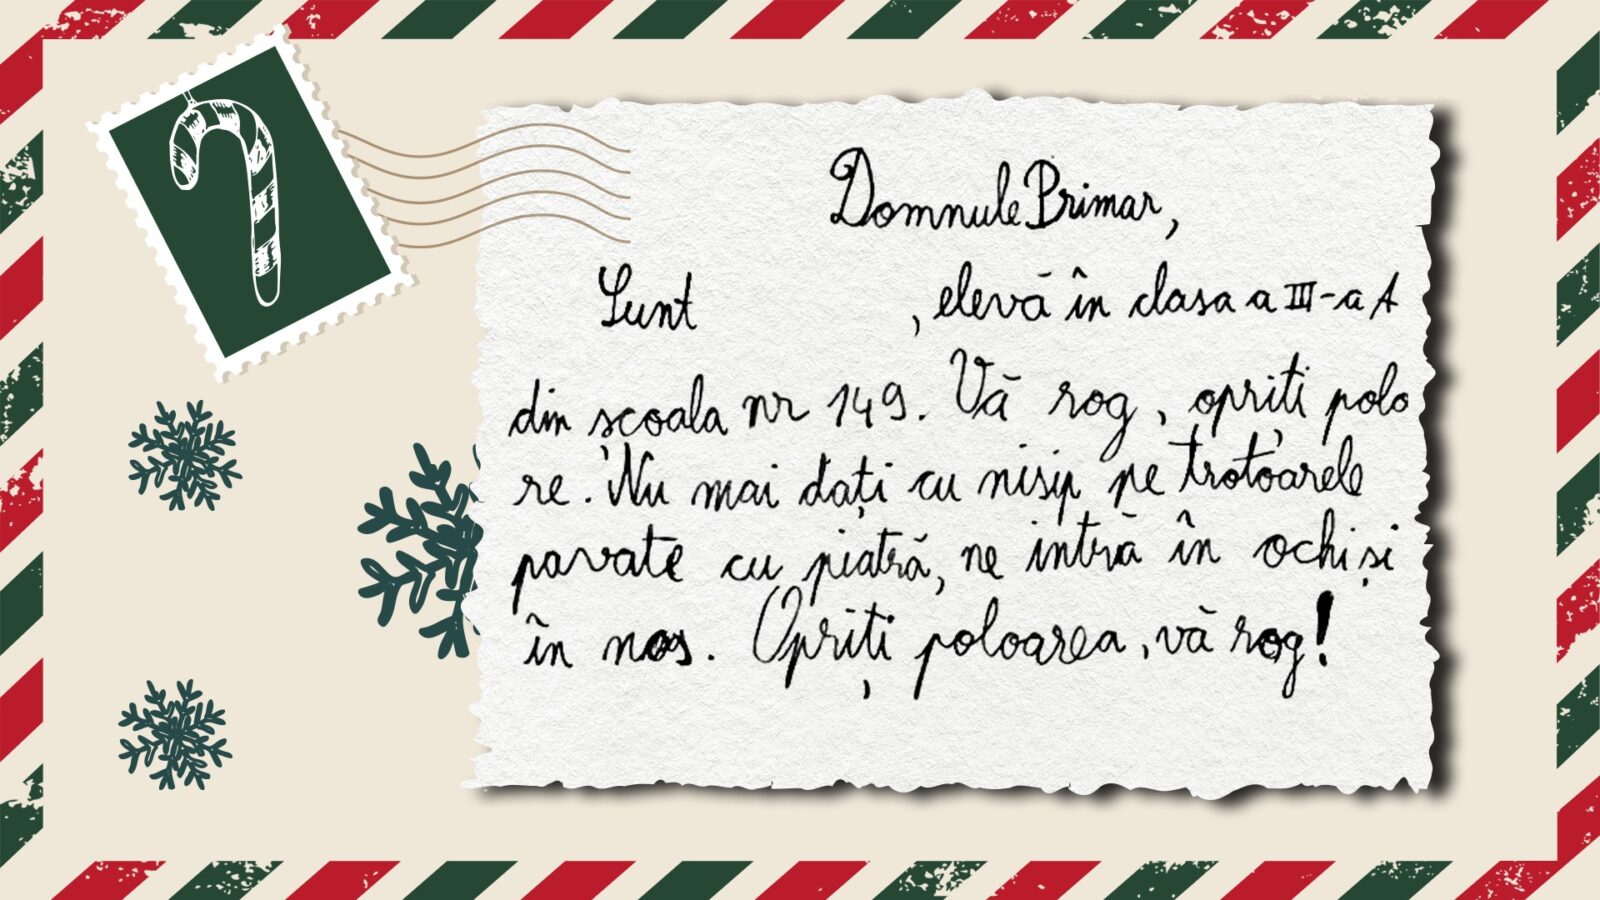 Domnule Primar,
Sunt , elevă în clasa a III-a A
din școala nr 149. Vă rog, opriți polo
re. Nu mai dați cu nisip pe trotoarele
pavate cu piatră, ne intră în ochi și
în nas. Opriți poloarea, vă rog!